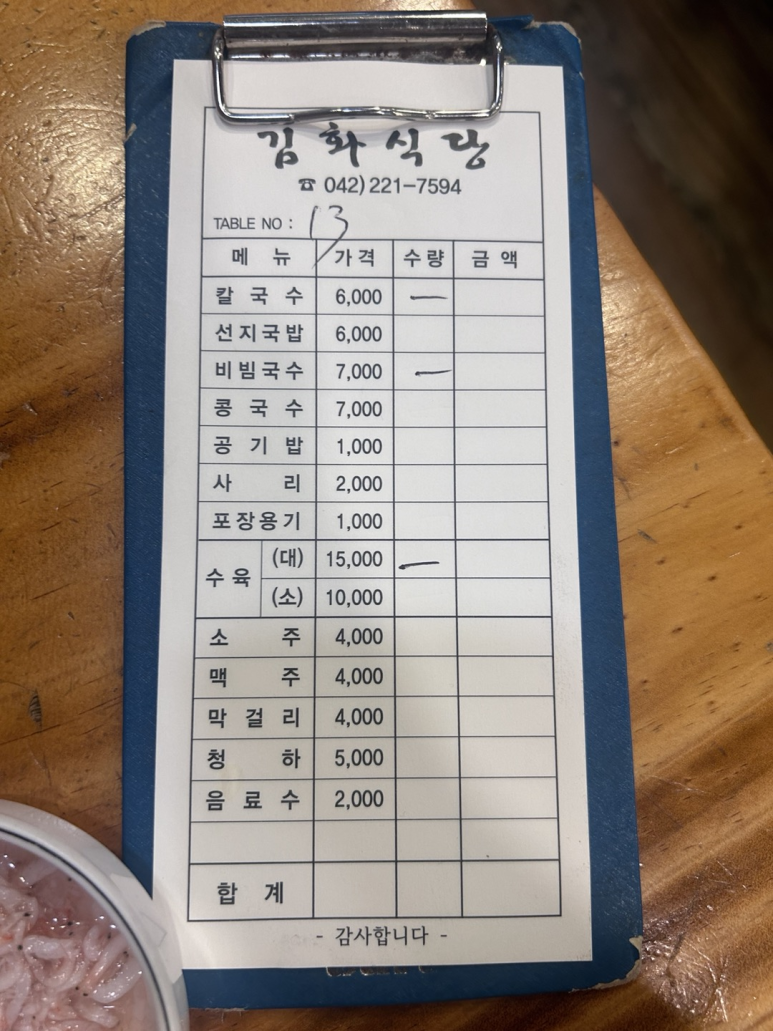 김화식당
☎ 042) 221-7594
TABLE NO : 13
메 뉴 가 격 수 량 금 액
칼 국 수 6,000 一
선지국밥 6,000
비빔국수 7,000 一
콩 국 수 7,000
공 기 밥 1,000
사 리 2,000
포장용기 1,000
수 육 (대) 15,000 一
(소) 10,000
소 주 4,000
맥 주 4,000
막 걸 리 4,000
청 하 5,000
음 료 수 2,000
합 계
- 감사합니다 -